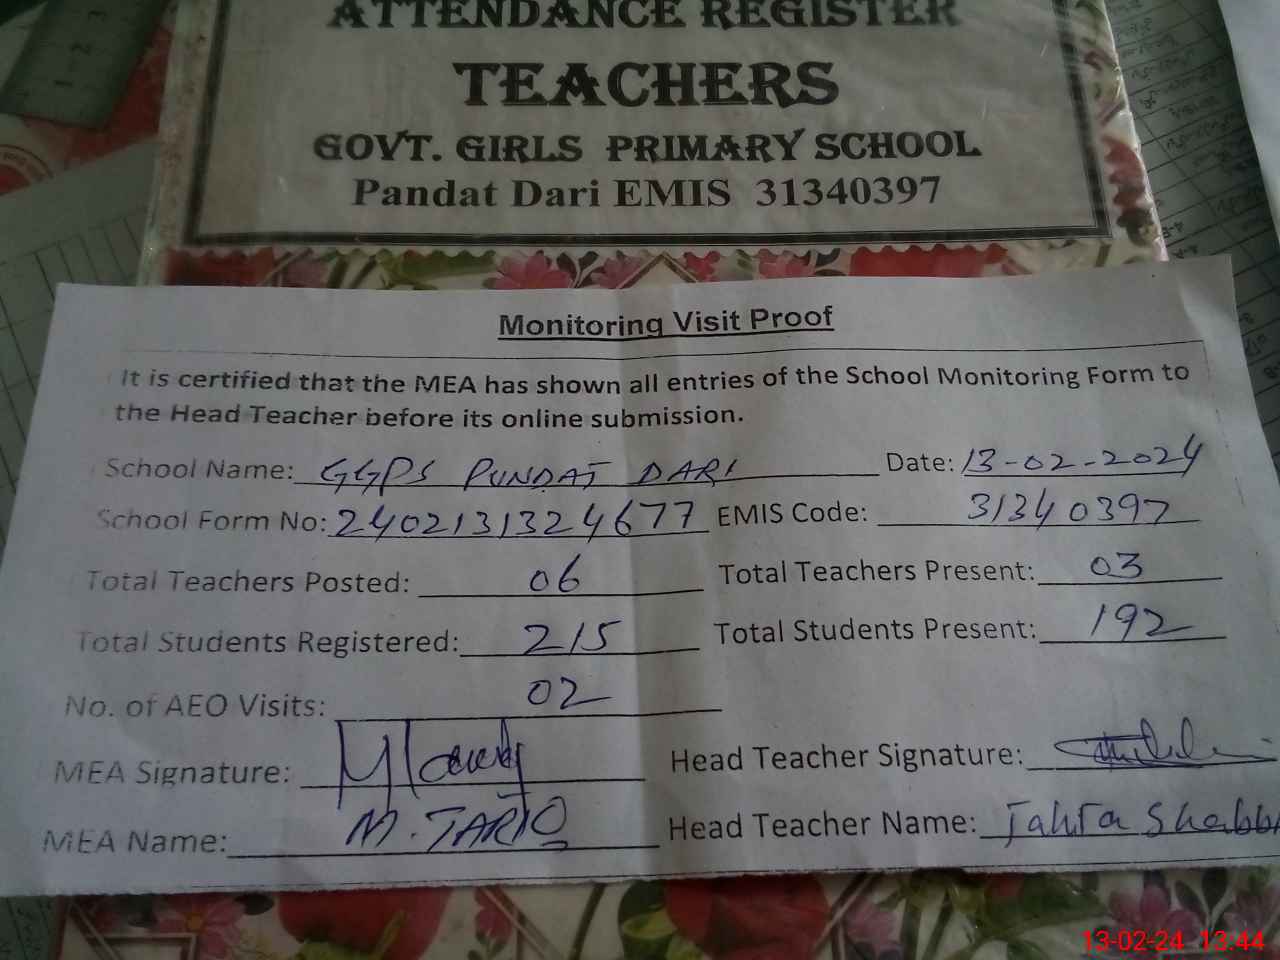 ATTENDANCE REGISTER
TEACHERS
GOVT. GIRLS PRIMARY SCHOOL
Pandat Dari EMIS 31340397
Monitoring Visit Proof
It is certified that the MEA has shown all entries of the School Monitoring Form to
the Head Teacher before its online submission.
School Name: GGPS PUNDAT DARI Date: 13-02-2024
School Form No: 2402131324677 EMIS Code: 31340397
Total Teachers Posted: 06 Total Teachers Present: 03
Total Students Registered: 215 Total Students Present: 192
No. of AEO Visits: 02
MEA Signature: Head Teacher Signature:
MEA Name: M. TARIQ Head Teacher Name: Tahira Shabbi
13-02-24 13:44